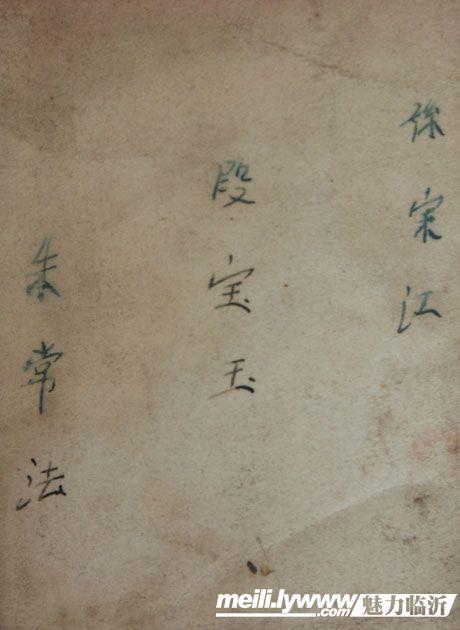 宋江
段宝玉
朱常法
meili.lywww.com 魅力临沂